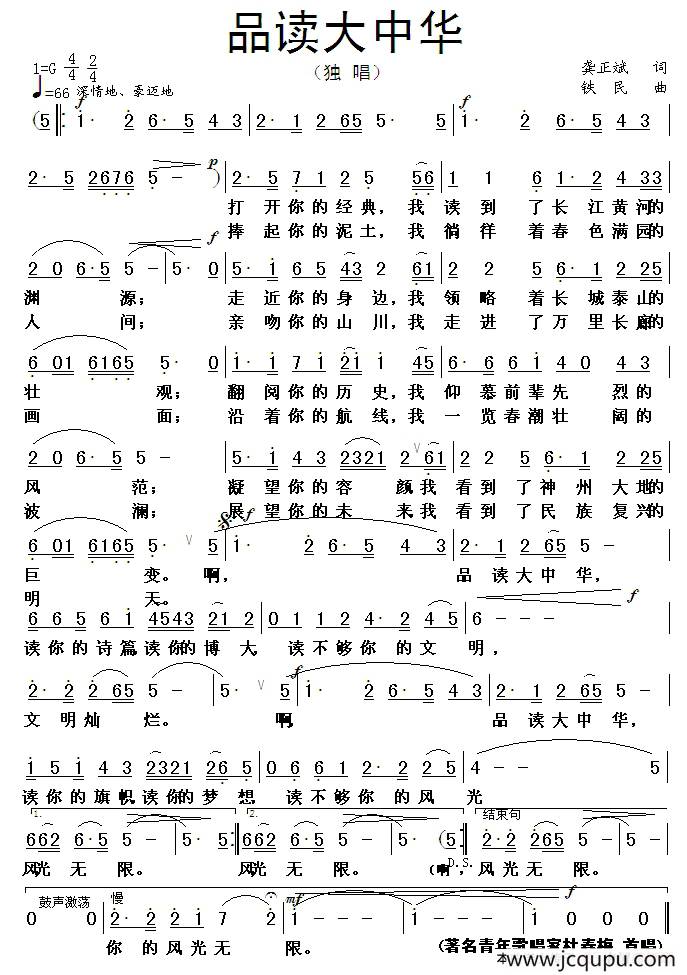 品读大中华
1=G 4/4 2/4
（独 唱）
龚正斌 词
♩=66 深情地、豪迈地
铁 民 曲
打开你的经典，我读到了长江黄河的
捧起你的泥土，我徜徉着春色满园的
渊源；走近你的身边，我领略着长城泰山的
人间；亲吻你的山川，我走进了万里长廊的
壮观；翻阅你的历史，我仰慕前辈先烈的
画面；沿着你的航线，我一览春潮壮阔的
风范；凝望你的容颜，我看到了神州大地的
波澜；展望你的未来，我看到了民族复兴的
巨变。啊，品读大中华，
明天。
读你的诗篇，读你的博大，读不够你的文明，
文明灿烂。啊，品读大中华，
读你的旗帜，读你的梦想，读不够你的风光
1.
2.
结束句
风光无限。风光无限。（啊，风光无限。
D.S.
鼓声激荡
慢
你的风光无限。
（著名青年歌唱家杜春梅 首唱）
本
www.jcqupu.com